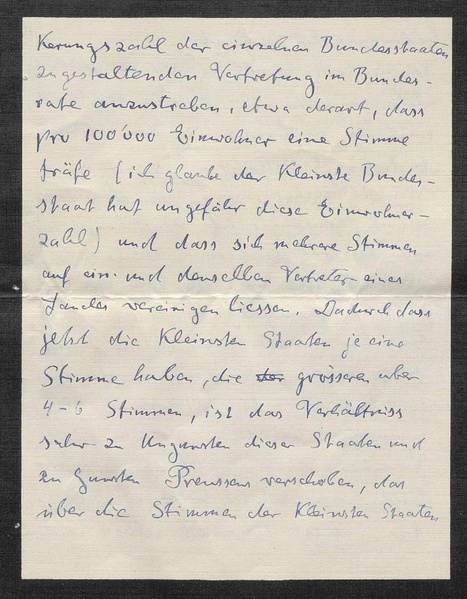 kerungszahl der einzelnen Bundesstaaten
zu gestaltenden Vertretung im Bundes-
rate anzustreben, etwa derart, dass
pro 100'000 Einwohner eine Stimme
träfe (ich glaube der Kleinste Bundes-
staat hat ungefähr diese Einwohner-
zahl) und dass sich mehrere Stimmen
auf ein und denselben Vertreter eines
Landes vereinigen liessen. Dadurch dass
jetzt die Kleinsten Staaten je eine
Stimme haben, die der grösseren aber
4-6 Stimmen, ist das Verhältniss
sehr zu Ungunsten dieser Staaten und
zu Gunsten Preussens verschoben, das
über die Stimmen der Kleinsten Staaten